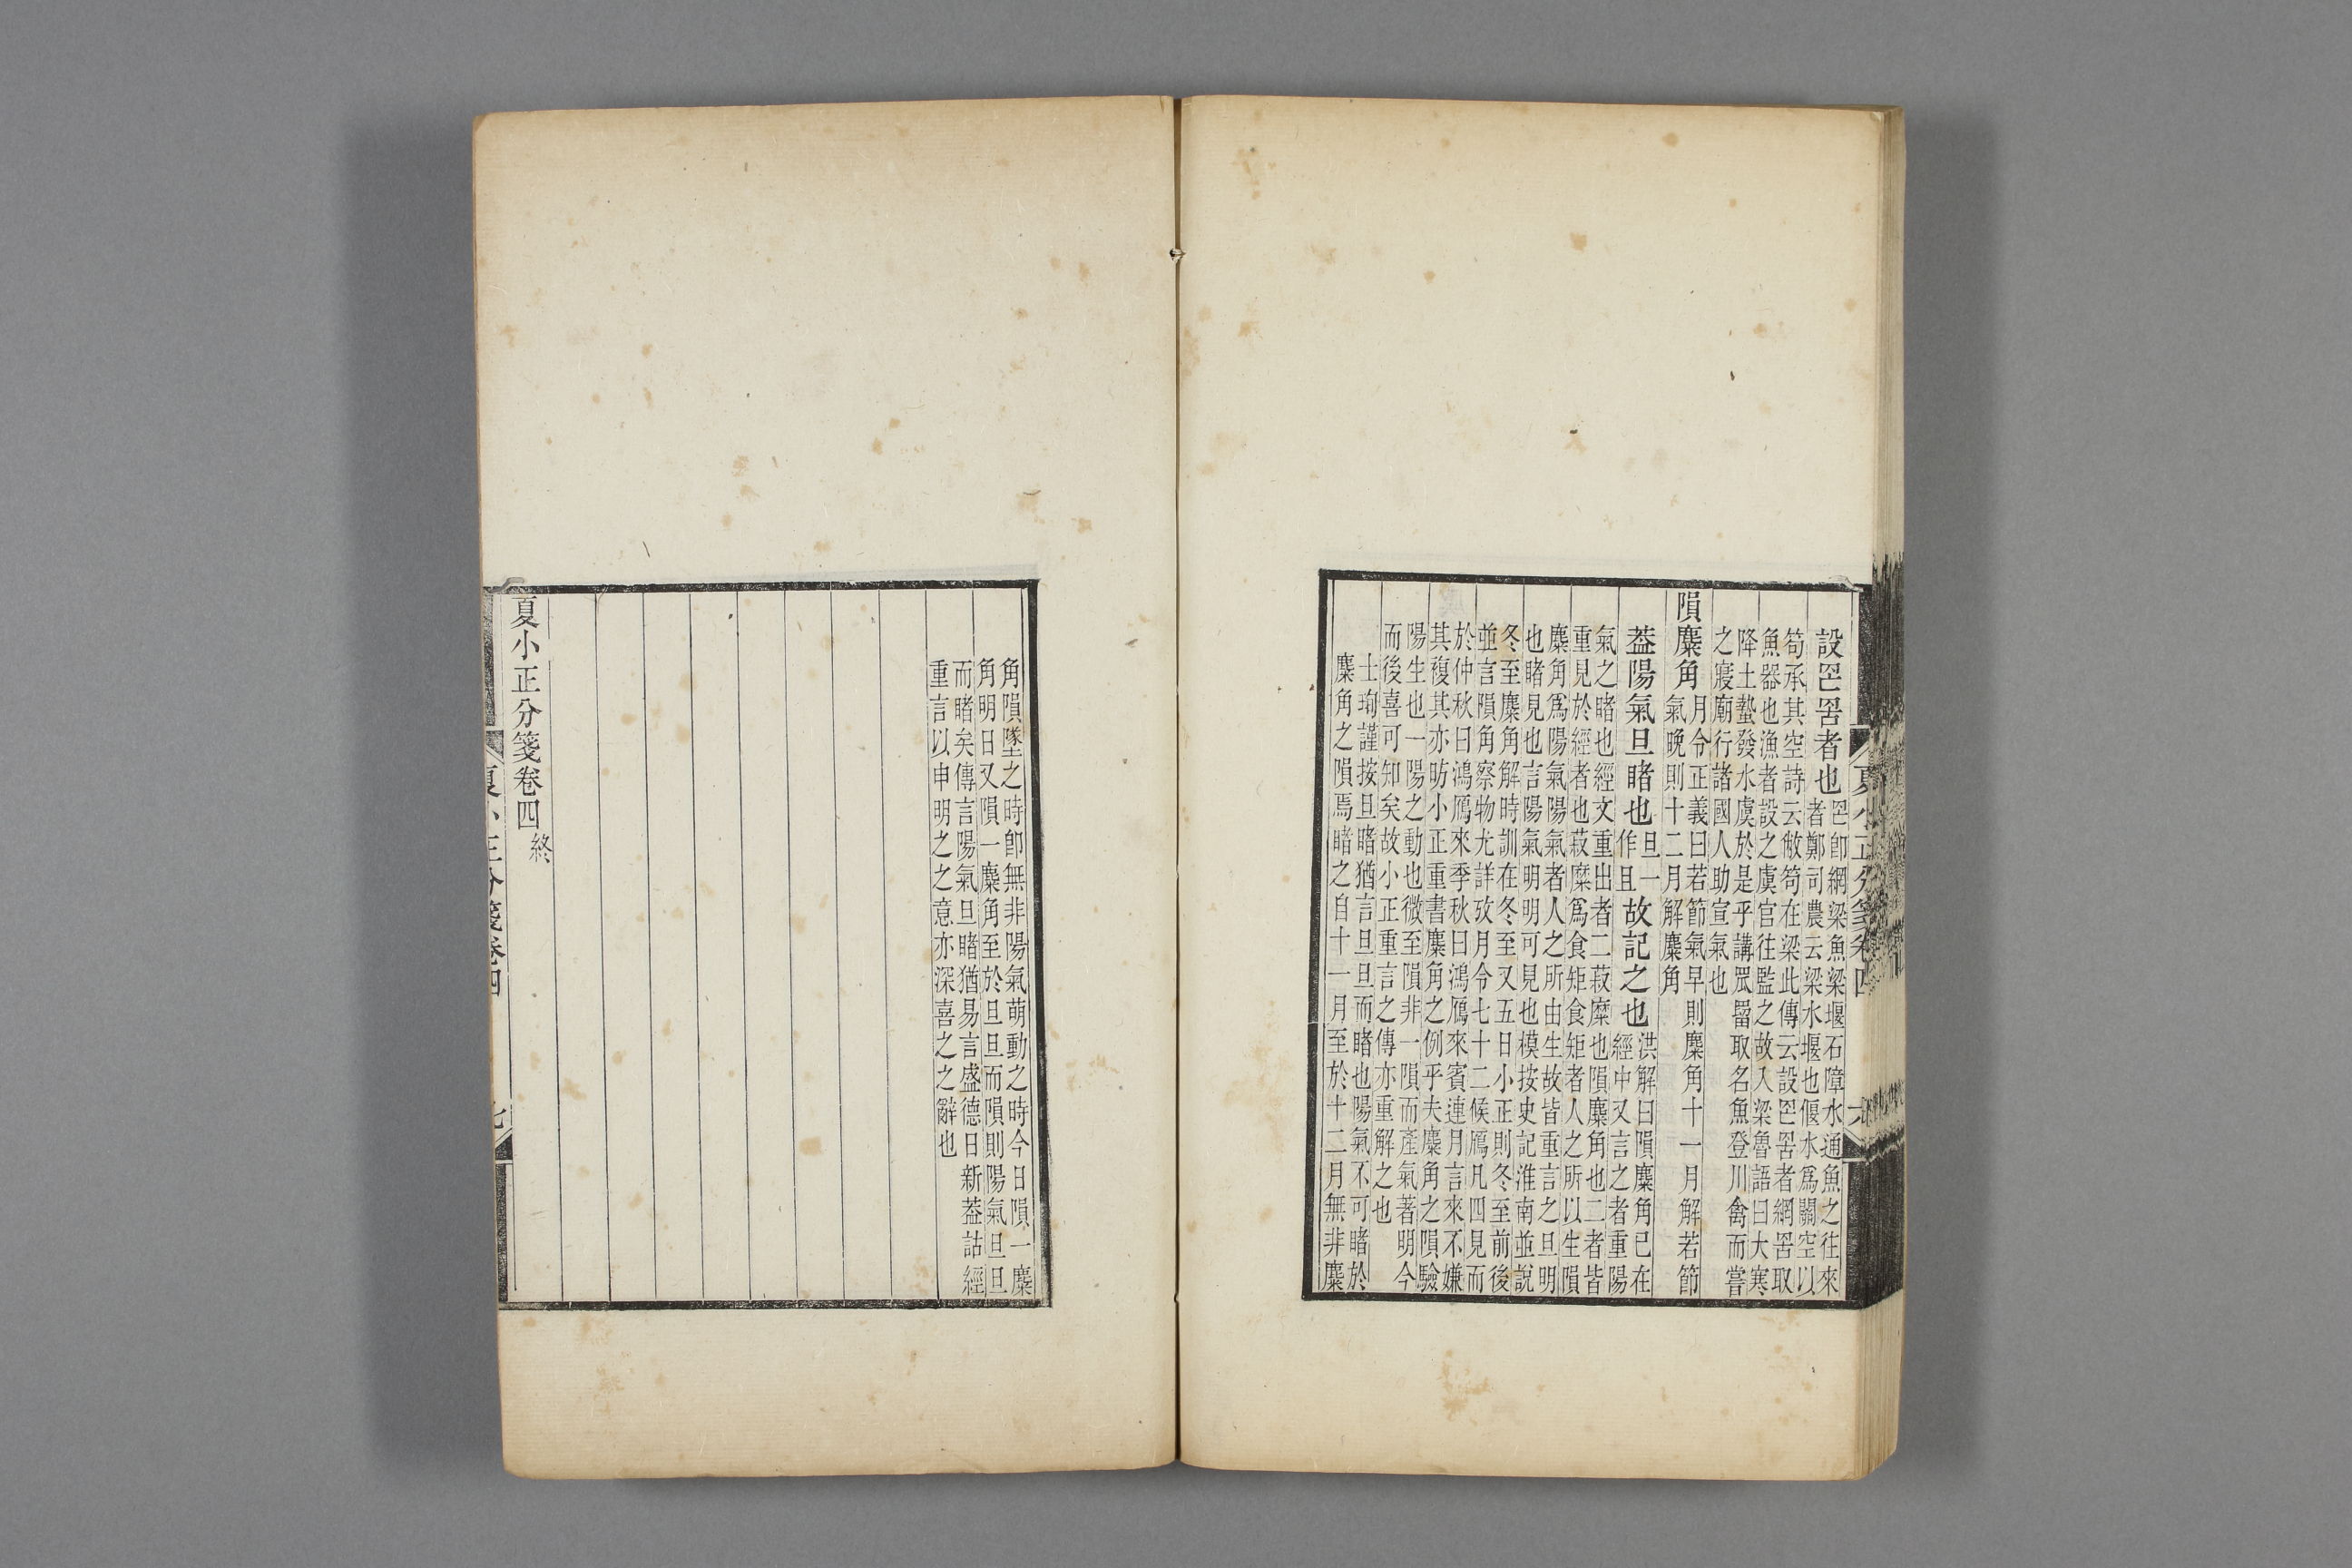 設罔罟者也罔即網梁魚梁堰石障水通魚之往來
者鄭司農云梁水堰也偃水爲關空以
笱承其空詩云敝笱在梁此傳云設罔罟者網罟取
魚器也漁者設之虞官往監之故入梁魯語曰大寒
降土蟄發水虞於是乎講眾罶取名魚登川禽而嘗
之寢廟行諸國人助宣氣也
隕麋角月令正義曰若節氣早則麋角十一月解若節
氣晚則十二月解麋角
葢陽氣旦睹也旦一作且故記之也洪解曰隕麋角已在
經中又言之者重陽
氣之睹也經文重出者二菽糜也隕麋角也二者皆
重見於經者也菽糜爲食矩食矩者人之所以生隕
麋角爲陽氣陽氣者人之所由生故皆重言之旦明
也睹見也言陽氣明明可見也模按史記淮南並說
冬至麋角解時訓在冬至又五日小正則冬至前後
並言隕角察物尤詳攷月令七十二候鴈凡四見而
於仲秋曰鴻鴈來季秋曰鴻鴈來賓連月言來不嫌
其複其亦昉小正重書麋角之例乎夫麋角之隕驗
陽生也一陽之動也微至隕非一隕而產氣著明今
而後喜可知矣故小正重言之傳亦重解之也
士珣謹按旦睹猶言旦旦而睹也陽氣不可睹於
麋角之隕焉睹之自十一月至於十二月無非麋
角隕墜之時卽無非陽氣萌動之時今日隕一麋
角明日又隕一麋角至於旦旦而隕則陽氣旦旦
而睹矣傳言陽氣旦睹猶易言盛德日新葢詁經
重言以申明之之意亦深喜之之辭也
夏小正分箋卷四終
夏小正分箋卷四
七